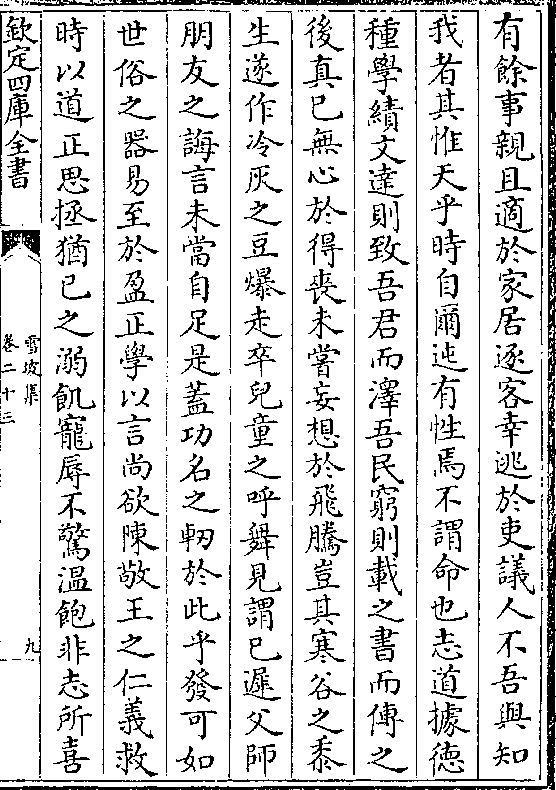 有餘事親且適於家居逐客幸逃於吏議人不吾與知
我者其惟天乎時自爾迍有性焉不謂命也志道據德
種學績文達則致吾君而澤吾民窮則載之書而傳之
後真已無心於得喪未嘗妄想於飛騰豈其寒谷之黍
生遂作冷灰之豆爆走卒兒童之呼舞見謂已遲父師
朋友之誨言未當自足是蓋功名之軔於此乎發可如
世俗之器易至於盈正學以言尚欲陳敬王之仁義救
時以道正思拯猶已之溺飢寵辱不驚溫飽非志所喜
欽定四庫全書
雪坡集
卷二十三
九